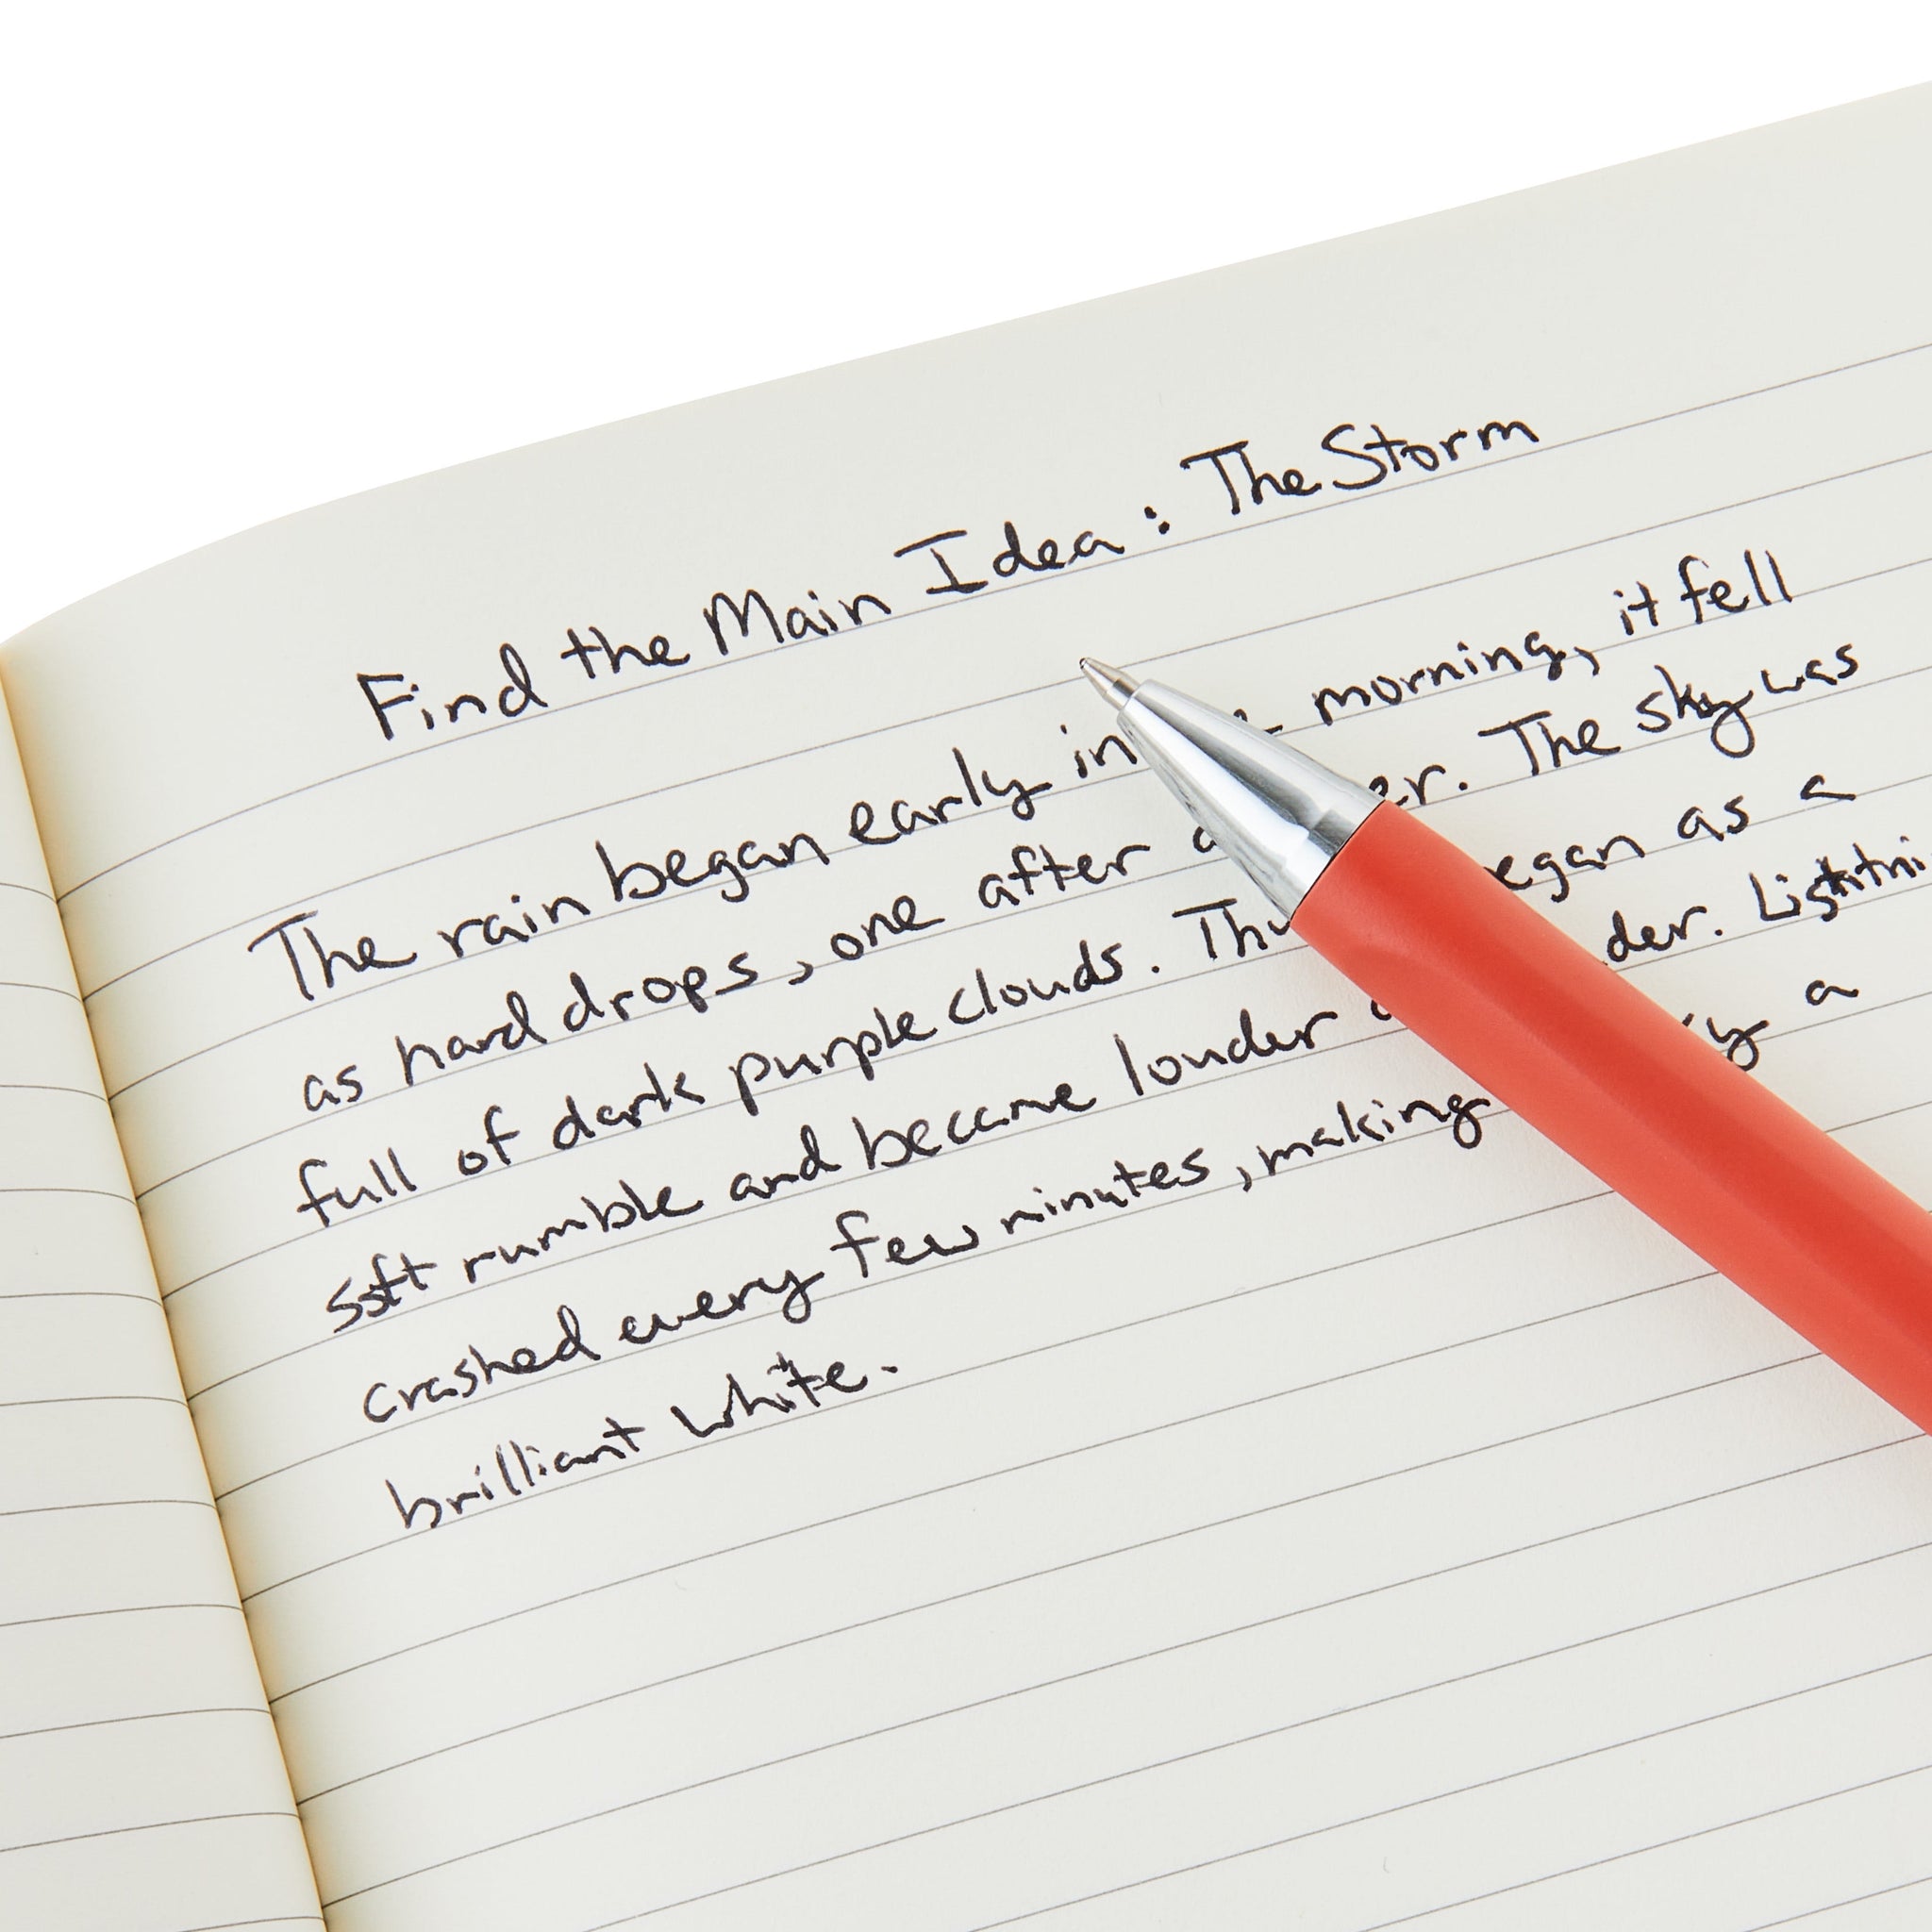 Find the Main Idea: The Storm
The rain began early in morning, it fell
as hard drops, one after The sky was
full of dark purple clouds. as a
soft rumble and became louder
crashed every few minutes, making a
brilliant white.